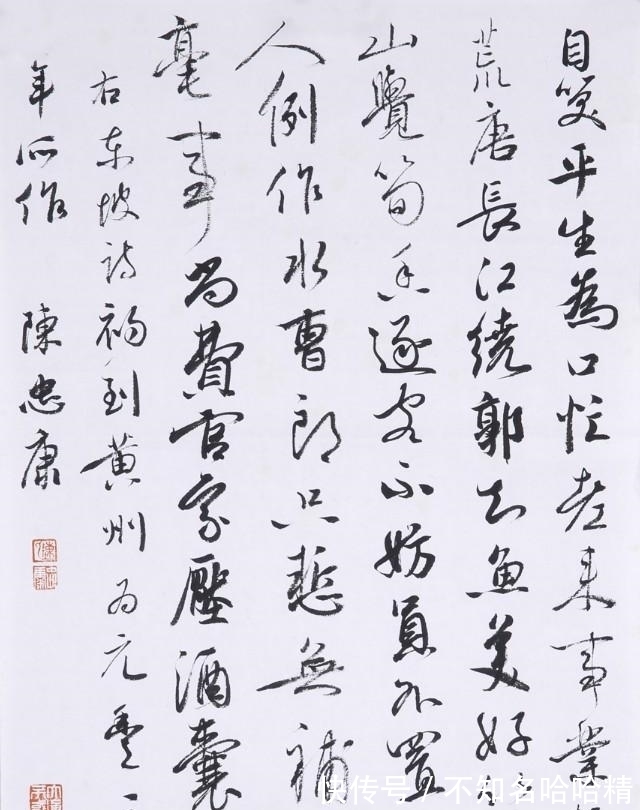 自笑平生為口忙老来事業
荒唐長江繞郭知魚美好
山覺筍香逐客不妨員外置
人例作水曹郎只慙無補
毫事尚費官家壓酒囊
右東坡詩初到黄州為元豊
年所作 陳忠康
快传号/不知名哈哈精